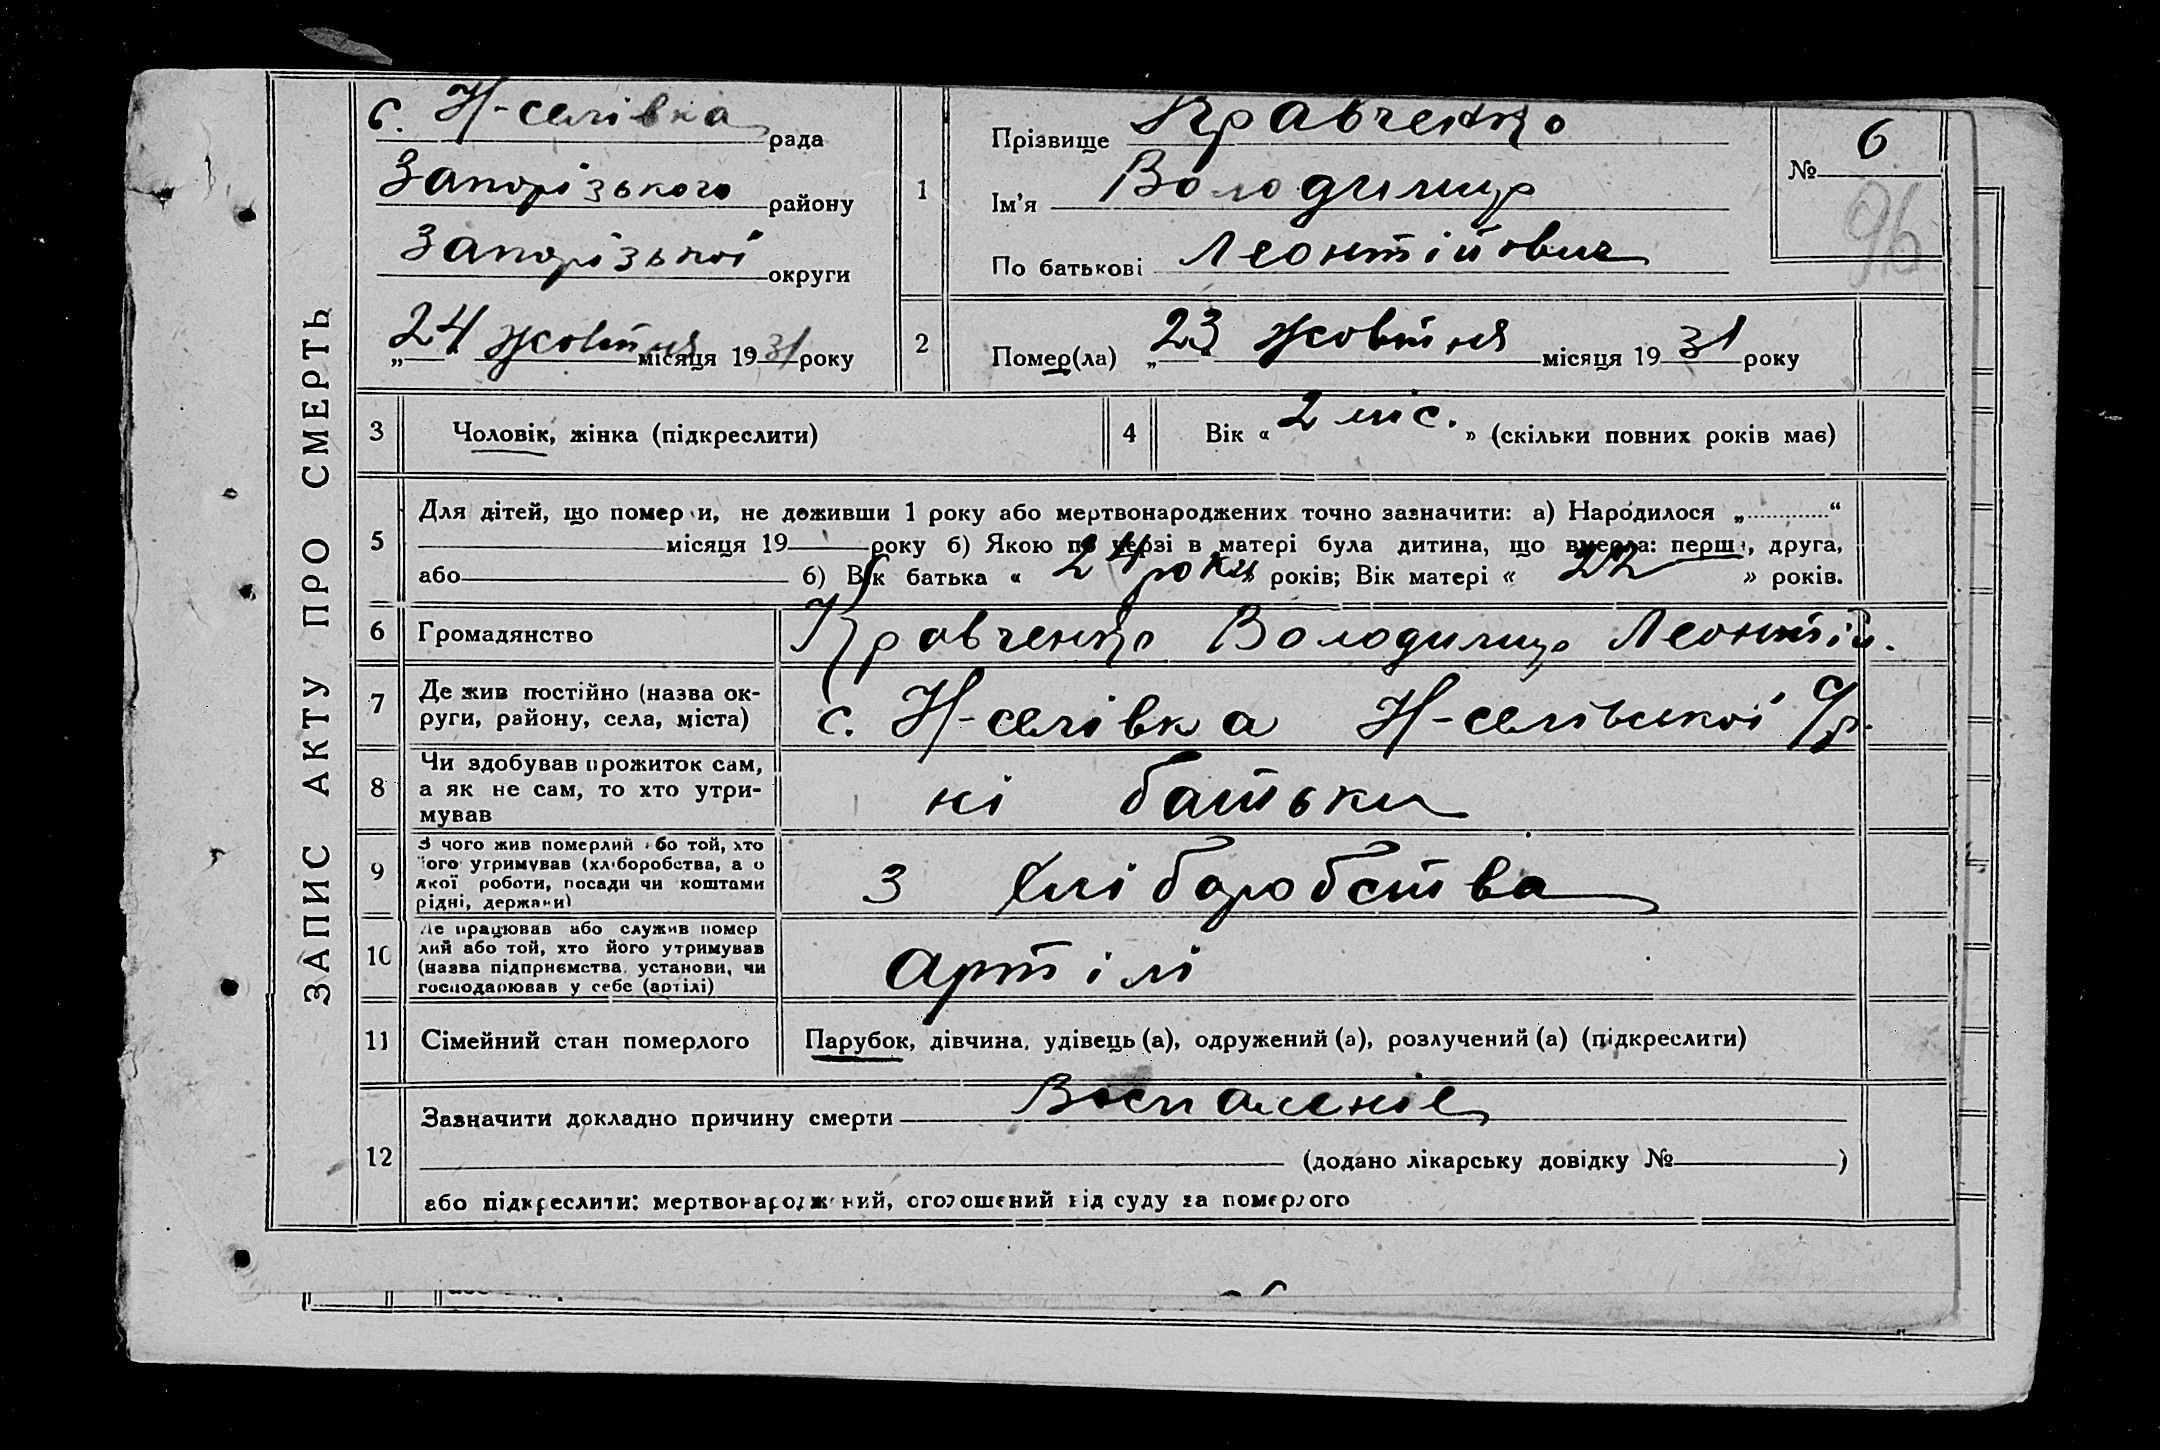 ЗАПИС АКТУ ПРО СМЕРТЬ
с. Н-селівка рада
Запорізького району
Запорізької округи
„24“ жовтня місяця 1931 року
1
Прізвище Кравченко
Ім'я Володимир
По батькові Леонтійович
№ 6
96
2
Помер(ла) „23“ жовтня місяця 1931 року
3
Чоловік, жінка (підкреслити)
4
Вік « 2 міс. » (скільки повних років має)
5
Для дітей, що померли, не доживши 1 року або мертвонароджених точно зазначити: а) Народилося „ “
місяця 19 року б) Якою по черзі в матері була дитина, що вмерла: перша, друга,
або б) Вік батька « 24 роки років; Вік матері « 22 » років.
6
Громадянство
Кравченко Володимир Леонтій.
7
Де жив постійно (назва ок-
руги, району, села, міста)
с. Н-селівка Н-селівської с/р.
8
Чи здобував прожиток сам,
а як не сам, то хто утри-
мував
ні батьки
9
З чого жив померлий або той, хто
його утримував (хліборобства, а о
якої роботи, посади чи коштами
рідні, держави)
З хліборобства
10
Де працював або служив помер
лий або той, хто його утримував
(назва підприємства, установи, чи
господарював у себе (артілі)
Артілі
11
Сімейний стан померлого
Парубок, дівчина, удівець (а), одружений (а), розлучений (а) (підкреслити)
12
Зазначити докладно причину смерти Воспаленіе
(додано лікарську довідку № )
або підкреслити: мертвонароджений, оголошений від суду за померлого